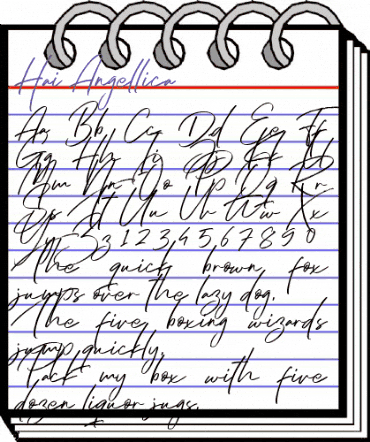 Hai Angellica
Aa Bb Cc Dd Ee Ff
Gg Hh Ii Jj Kk Ll
Mm Nn Oo Pp Qq Rr
Ss Tt Uu Vv Ww Xx
Yy Zz 1 2 3 4 5 6 7 8 9 0
The quick brown fox
jumps over the lazy dog.
The five boxing wizards
jump quickly.
Pack my box with five
dozen liquor jugs.